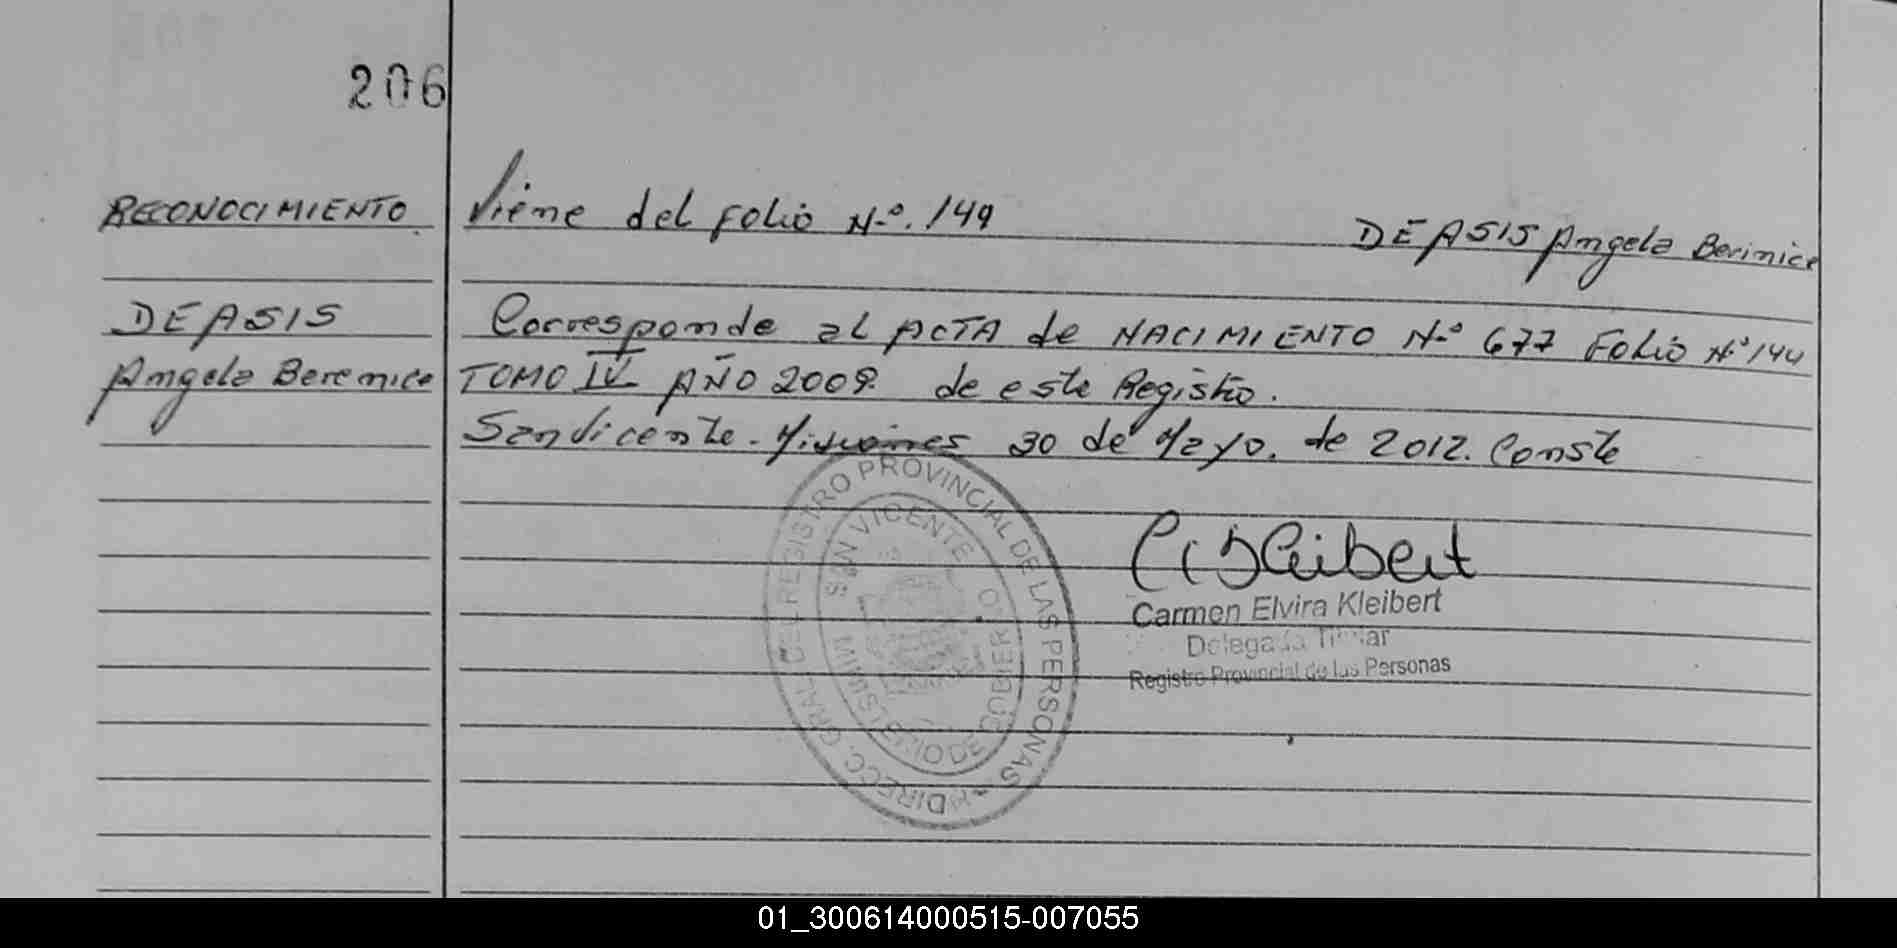 206
RECONOCIMIENTO
DEASIS
Angela Berenice
Viene del Folio Nº. 149
DEASIS Angela Berinice
Corresponde al ACTA de NACIMIENTO Nº 677 Folio Nº 144
TOMO IV AÑO 2009. de este Registro.
San Vicente. Misiones 30 de Mayo. de 2012. Conste
DIRECC. GRAL. DEL REGISTRO PROVINCIAL DE LAS PERSONAS
SAN VICENTE
MINISTERIO DE GOBIERNO
Kleibert
Carmen Elvira Kleibert
Delegada Titular
Registro Provincial de las Personas
01_300614000515-007055